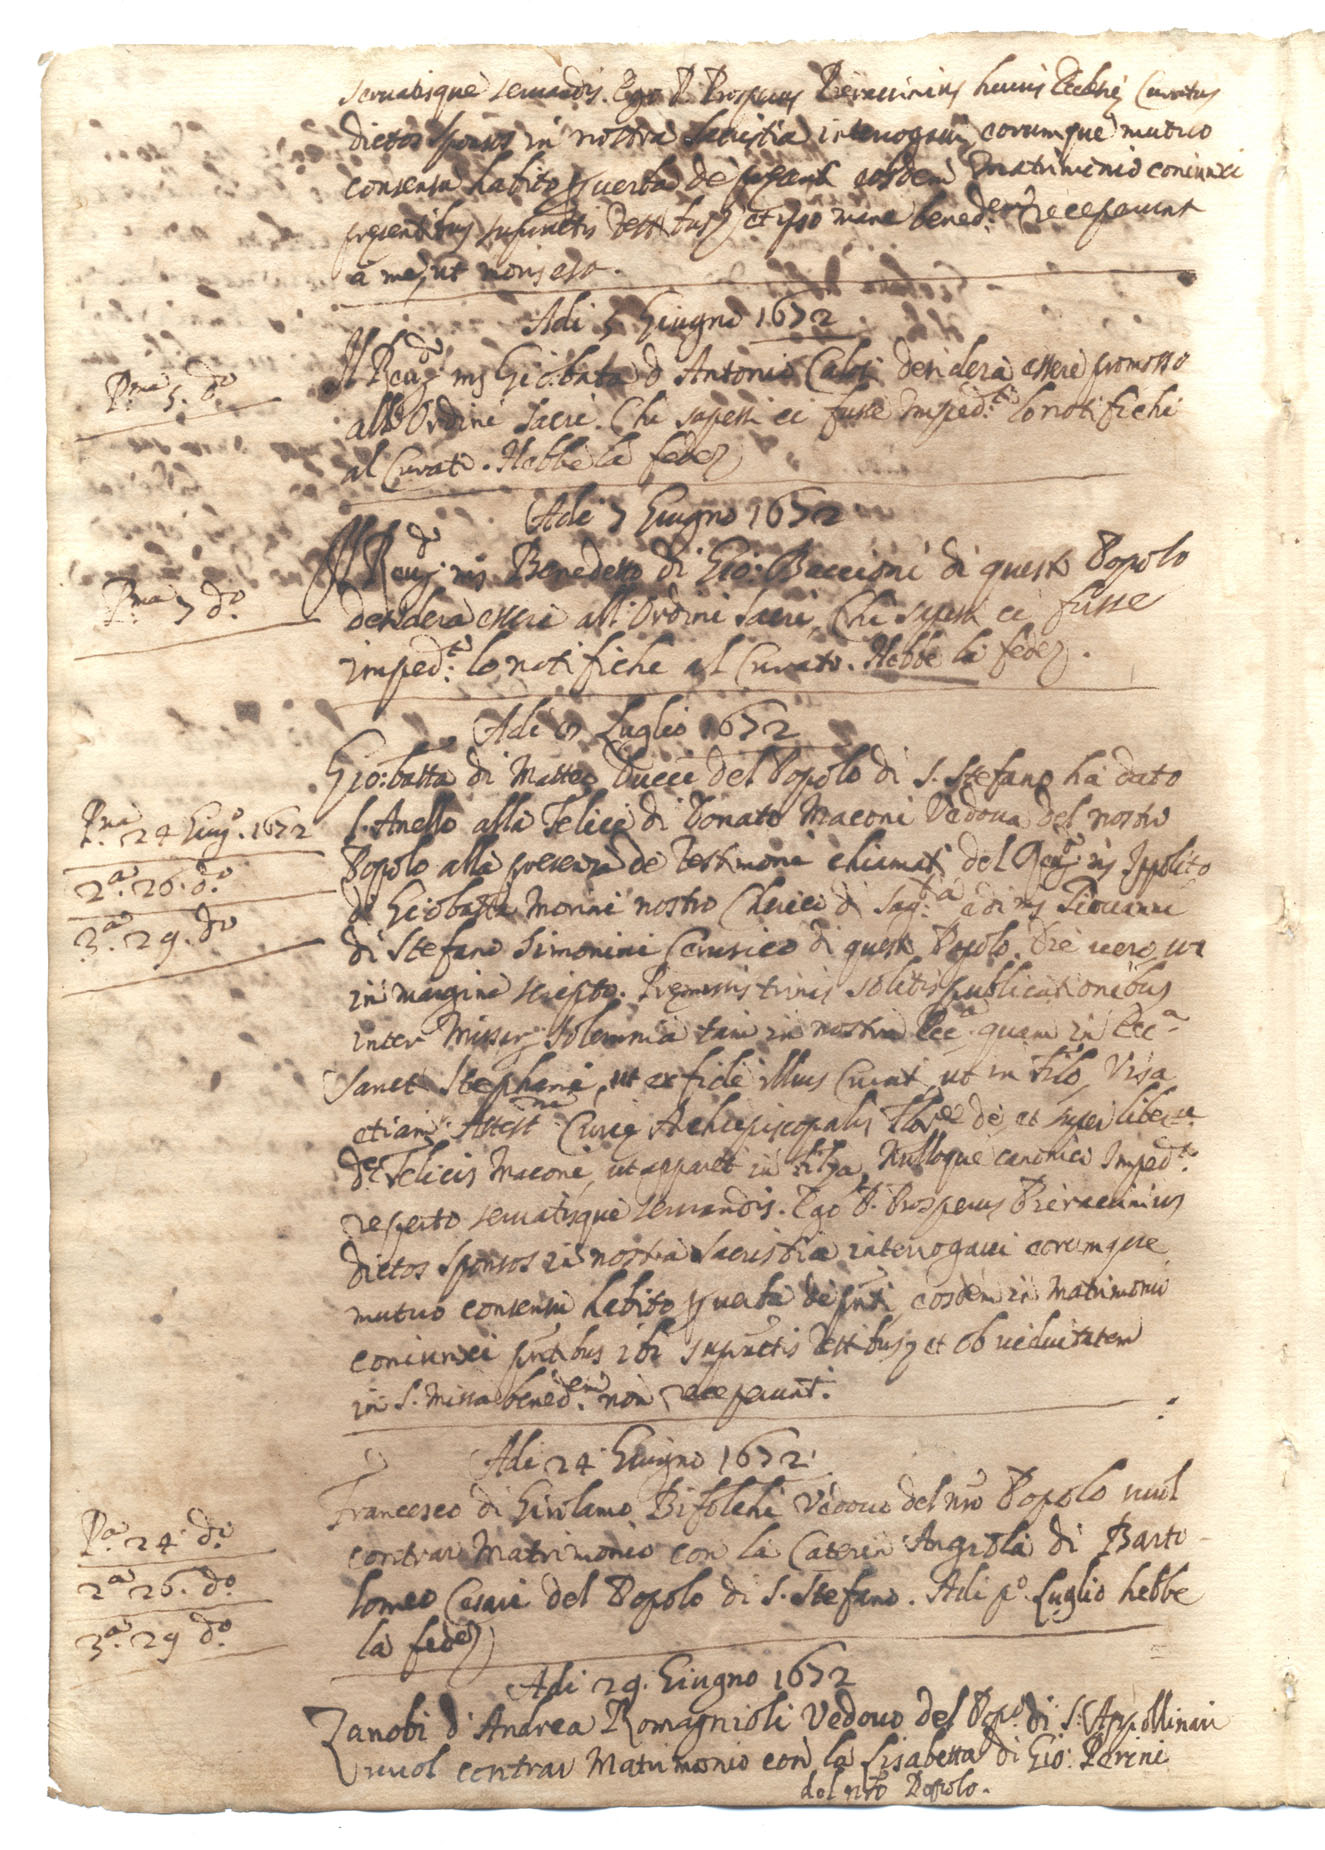 seruatisque seruandis. Ego P. Prosperus Pieraccinius huius Eccl. Curatus
dictos sponsos in nostra Sacristia interrogaui, eorumque mutuo
consensu habito p uerba de eosdem Matrimonio coniunxi
presentibus supradictis Testibus, et ipso mane bened.em receperunt
a me, ut moris est.
Adi 5 Giugno 1672
Pma 5. do
Il Reu.do ms Gio:bata d Antonio desidera essere promosso
all Ordini Sacri. Chi sapessi ci fusse imped.to lo notifichi
al Curato. Hebbe la fede
Adi 7 Giugno 1672
Pma 7 do
Il Reu.do ms Benedetto di Gio: Baccioni di questo Popolo
desidera essere all'Ordini Sacri, Chi sapessi ci fusse
imped.to lo notifiche al Curato. Hebbe la fede.
Adi Luglio 1672
Gio:batta di Matteo Ducci del Popolo di S. Stefano ha dato
Pma 24 Giug.o 1672
l'Anello alla Felice di Donato Maconi Vedoua del nostro
2a. 26. do
Popolo alla presenza de Testimoni chiamati del Reu.do ms Ippolito
di Gio:batta Morini nostro Cherico di Sag.tia e di ms Giouanni
3a. 29. do
di Stefano Simonini Cerusico di questo Popolo. Die uero, ut
in margine scripto. Premissis trinis solitis publicationibus
inter Missar. solemnia tam in nostra Ecc.a quam in Ecc.a
Sancti Stephani, ut ex fide illius Curati, ut in filo, Visa
etiam Attest.ne Curie Archiepiscopalis Flor.e de, et super liber.te
d.e Felicis Maconi, ut apparet in filza, Nulloque canonico Imped.to
reperto seruatisque seruandis. Ego P. Prosperus Pieraccinius
dictos sponsos in nostra Sacristia interrogaui eorumque
mutuo consensu habito p uerba de pnti eosdem in Matrimonio
coniunxi pntibus ibi supractis Testibus, et ob uiduitatem
in S. Missa bened.em non receperunt.
Adi 24 Giugno 1672
Francesco di Girolamo Bifolchi Vedouo del nro Popolo uuol
Pa. 24 do
contrar Matrimonio con la Caterin Angiola di Barto-
2a 26. do
lomeo Cesari del Popolo di S. Stefano. Adi po. Luglio hebbe
3a. 29 do
la fede
Adi 29. Giugno 1672
Zanobi d'Andrea Romagnioli Vedouo del Popo. di S. Appollinari
uuol contrar Matrimonio con la Lisabetta di Gio: Perini
del nro Popolo.